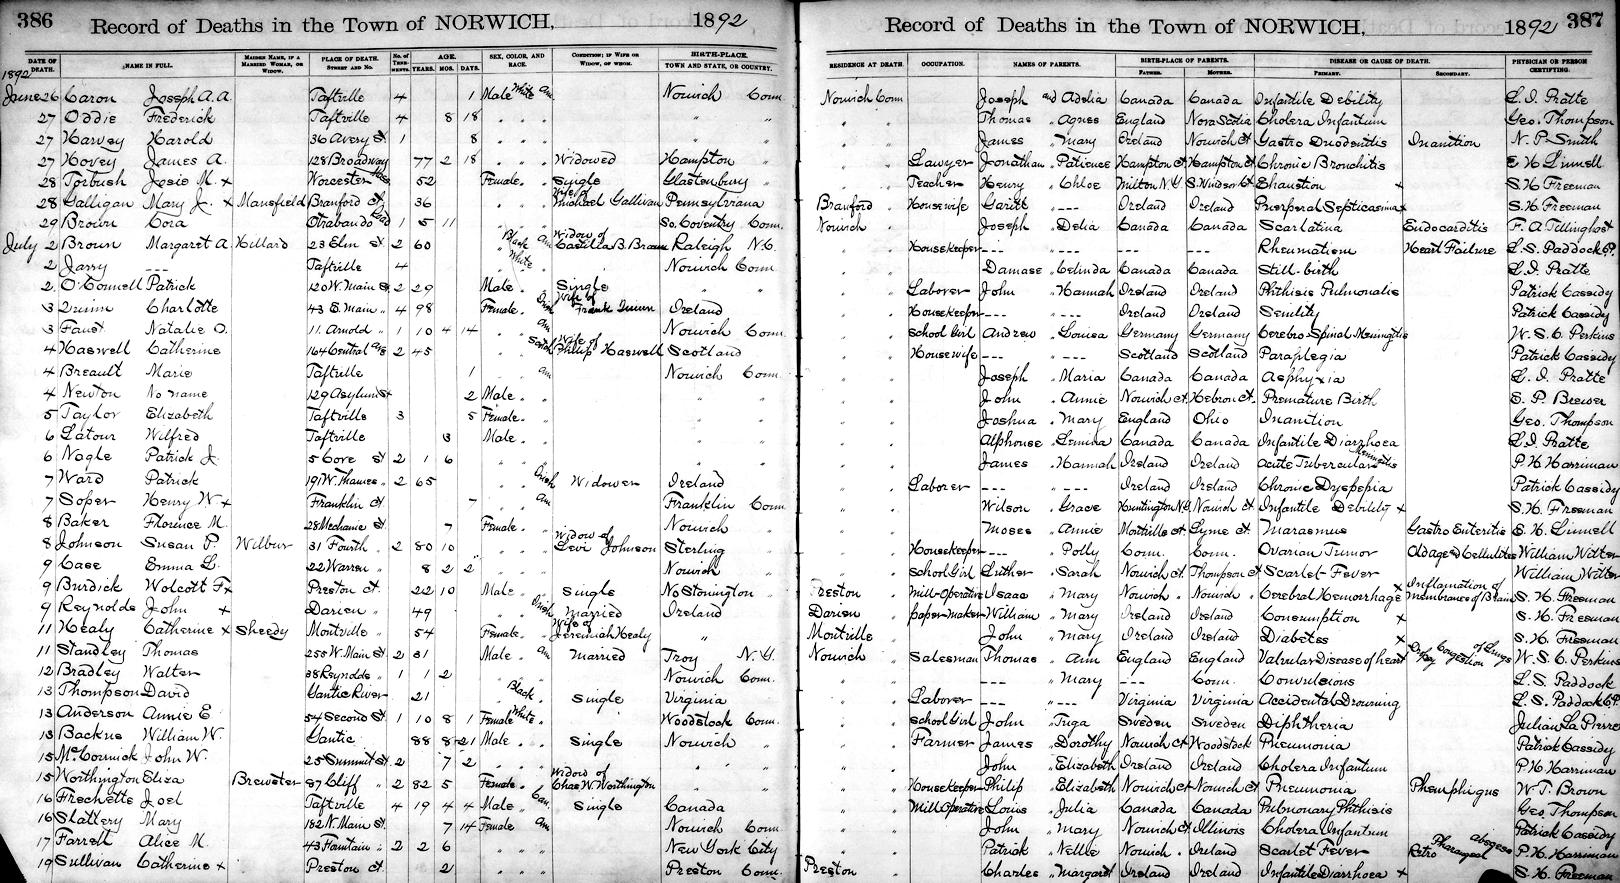 386 Record of Deaths in the Town of NORWICH, 1892
DATE OF DEATH. NAME IN FULL. MAIDEN NAME, IF A MARRIED WOMAN, OR WIDOW. PLACE OF DEATH. STREET AND NO. No. of TENEMENTS. AGE. YEARS. MOS. DAYS. SEX, COLOR, AND RACE. CONDITION; IF WIFE OR WIDOW, OF WHOM. BIRTH-PLACE. TOWN AND STATE, OR COUNTRY.
1892
June 26 Caron Joseph A. A. Taftville 4 1 Male White Am. Norwich Conn.
27 Oddie Frederick Taftville 4 8 18 " " " " "
27 Harvey Harold 36 Avery St. 1 8 " " " " "
27 Hovey James A. 128 Broadway 77 2 18 " " " Widowed Hampton "
28 Forbush Josie M. x Worcester Mass 52 Female " " Single Glastonbury "
28 Galligan Mary J. x Mansfield Branford Ct. 36 " " " Wife of Michael Gallivan Pennsylvania
29 Brown Cora Otrabando Road 1 5 11 " " " So. Coventry Conn.
July 2 Brown Margaret A. Hillard 23 Elm St. 2 60 " Black Am Widow of B. Brown Raleigh N.C.
2 Jarry --- Taftville 4 " White " Norwich Conn
2 O'Connell Patrick 120 W. Main St. 2 29 Male " " Single " "
3 Quinn Charlotte 43 E. Main " 4 98 Female " Irish Wife of Frank Quinn Ireland
3 Faust Natalie O. 11 Arnold " 1 10 4 14 " " Am Norwich Conn.
4 Haswell Catherine 164 Central Ave 2 45 " " Scotch Wife of Philip Haswell Scotland
4 Breault Marie Taftville 1 " " Am Norwich Conn.
4 Newton No name 129 Asylum St 2 Male " " " "
5 Taylor Elizabeth Taftville 3 5 Female " " " "
6 Latour Wilfred Taftville 3 Male " " " "
6 Nagle Patrick J. 5 Cove St 2 1 6 " " " " "
7 Ward Patrick 191 W. Thames " 2 65 " " Irish Widower Ireland
7 Soper Henry W. x Franklin Ct. 7 " " Am Franklin Conn
8 Baker Florence M. 28 Mechanic St 7 Female " " Norwich "
8 Johnson Susan P. Wilbur 31 Fourth " 2 80 10 " " " Widow of Levi Johnson Sterling "
9 Case Emma L. 22 Warren " 8 2 2 " " " Norwich "
9 Burdick Wolcott F. x Preston Ct. 22 10 Male " " Single No Stonington "
9 Reynolds John x Darien " 49 " " Irish Married Ireland
11 Healy Catherine x Sheedy Montville " 54 Female " " Wife of Jeremiah Healy "
11 Standley Thomas 255 W. Main St. 2 31 Male " Am Married Troy N.Y.
12 Bradley Walter 38 Reynolds " 1 1 2 " " " Norwich Conn.
13 Thompson David Yantic River 21 " Black " Single Virginia
13 Anderson Annie E. 54 Second St. 1 10 8 1 Female White " Woodstock Conn.
13 Backus William W. Yantic 88 8 21 Male " " Single Norwich "
15 McCormick John W. 25 Summit St. 2 7 2 " " " " "
15 Worthington Eliza Brewster 97 Cliff " 2 82 5 Female " " Widow of Chas W. Worthington " "
16 Frechette Joel Taftville 4 19 4 4 Male " Can. Single Canada
16 Slattery Mary 182 N. Main St. 7 14 Female " Am Norwich Conn
17 Farrell Alice M. 43 Fountain " 2 2 6 " " " New York City
19 Sullivan Catherine x Preston Ct. 2 " " " Preston Conn.
Record of Deaths in the Town of NORWICH, 1892 387
RESIDENCE AT DEATH. OCCUPATION. NAMES OF PARENTS. BIRTH-PLACE OF PARENTS. FATHER. MOTHER. DISEASE OR CAUSE OF DEATH. PRIMARY. SECONDARY. PHYSICIAN OR PERSON CERTIFYING.
Norwich Conn Joseph and Adelia Canada Canada Infantile Debility L. I. Pratte
" " Thomas " Agnes England Nova Scotia Cholera Infantum Geo. Thompson
" " James " Mary Ireland Norwich Ct. Gastro Duodenitis Inanition N. P. Smith
" " Lawyer Jonathan " Patience Hampton Ct Hampton Ct Chronic Bronchitis E H Linnell
" " Teacher Henry " Chloe Milton N.Y. S. Windsor Ct Exhaustion x S. H. Freeman
Branford " Housewife Garitt " --- Ireland Ireland Puerperal Septicaemia x S. H. Freeman
Norwich " Joseph " Delia Canada Canada Scarlatina Endocarditis F. A Tillinghast
" " Housekeeper --- " --- --- --- Rheumatism Heart Failure L. S. Paddock
" " Damase " Celinda Canada Canada Still-birth L. I. Pratte
" " Laborer John " Hannah Ireland Ireland Phthisis Pulmonalis Patrick Cassidy
" " Housekeeper --- " --- Ireland Ireland Senility Patrick Cassidy
" " School Girl Andrew " Louisa Germany Germany Cerebro-Spinal Meningitis W. S. C. Perkins
" " Housewife --- " --- Scotland Scotland Paraplegia Patrick Cassidy
" " Joseph " Maria Canada Canada Asphyxia L. I. Pratte
" " John " Annie Norwich Ct Hebron Ct. Premature Birth S. P. Brewer
" " Joshua " Mary England Ohio Inanition Geo. Thompson
" " Alphonse " Lemina Canada Canada Infantile Diarrhoea L. I. Pratte
" " James " Hannah Ireland Ireland Acute Tubercular Meningitis P. H. Harriman
" " Laborer --- " --- Ireland Ireland Chronic Dyspepsia Patrick Cassidy
" " Wilson " Grace Huntington N.Y. Norwich Ct. Infantile Debility x S. H. Freeman
" " Moses " Annie Montville Ct Lyme Ct. Marasmus Gastro Enteritis E. H. Linnell
" " Housekeeper --- " Polly Conn. Conn. Ovarian Tumor Old age & Cellulites William Witter
" " School Girl Luther " Sarah Norwich Ct. Thompson Ct Scarlet Fever William Witter
Preston " Mill-Operative Isaac " Mary Norwich " Norwich " Cerebral Hemorrhage x Inflamation of Membrances of Brain S. H. Freeman
Darien " paper-maker William " Mary Ireland Ireland Consumption x S. H. Freeman
Montville " John " Mary Ireland Ireland Diabetes x S. H. Freeman
Norwich " Salesman Thomas " Ann England England Valvular Disease of heart Congestion of Lungs W. S. C. Perkins
" " --- " Mary --- Conn. Convulsions L. S. Paddock
" " Laborer --- " --- Virginia Virginia Accidental Drowning L. S. Paddock
" " School Girl John " Tuga Sweden Sweden Diphtheria Julian La Pierre
" " Farmer James " Dorothy Norwich Ct Woodstock Pneumonia Patrick Cassidy
" " John " Elizabeth Ireland Ireland Cholera Infantum P. H. Harriman
" " Housekeeper Philip " Elizabeth Norwich Ct Norwich Ct. Pneumonia Phemphigus W. T. Brown
" " Mill Operative Louis " Julia Canada Canada Pulmonary Phthisis Geo Thompson
" " John " Mary Norwich Ct. Illinois Cholera Infantum Patrick Cassidy
" " Patrick " Nellie Norwich " Ireland Scarlet Fever Retro Pharangeal Abscess P. H. Harriman
Preston " Charles " Margaret Ireland Ireland Infantile Diarrhoea x S. H. Freeman